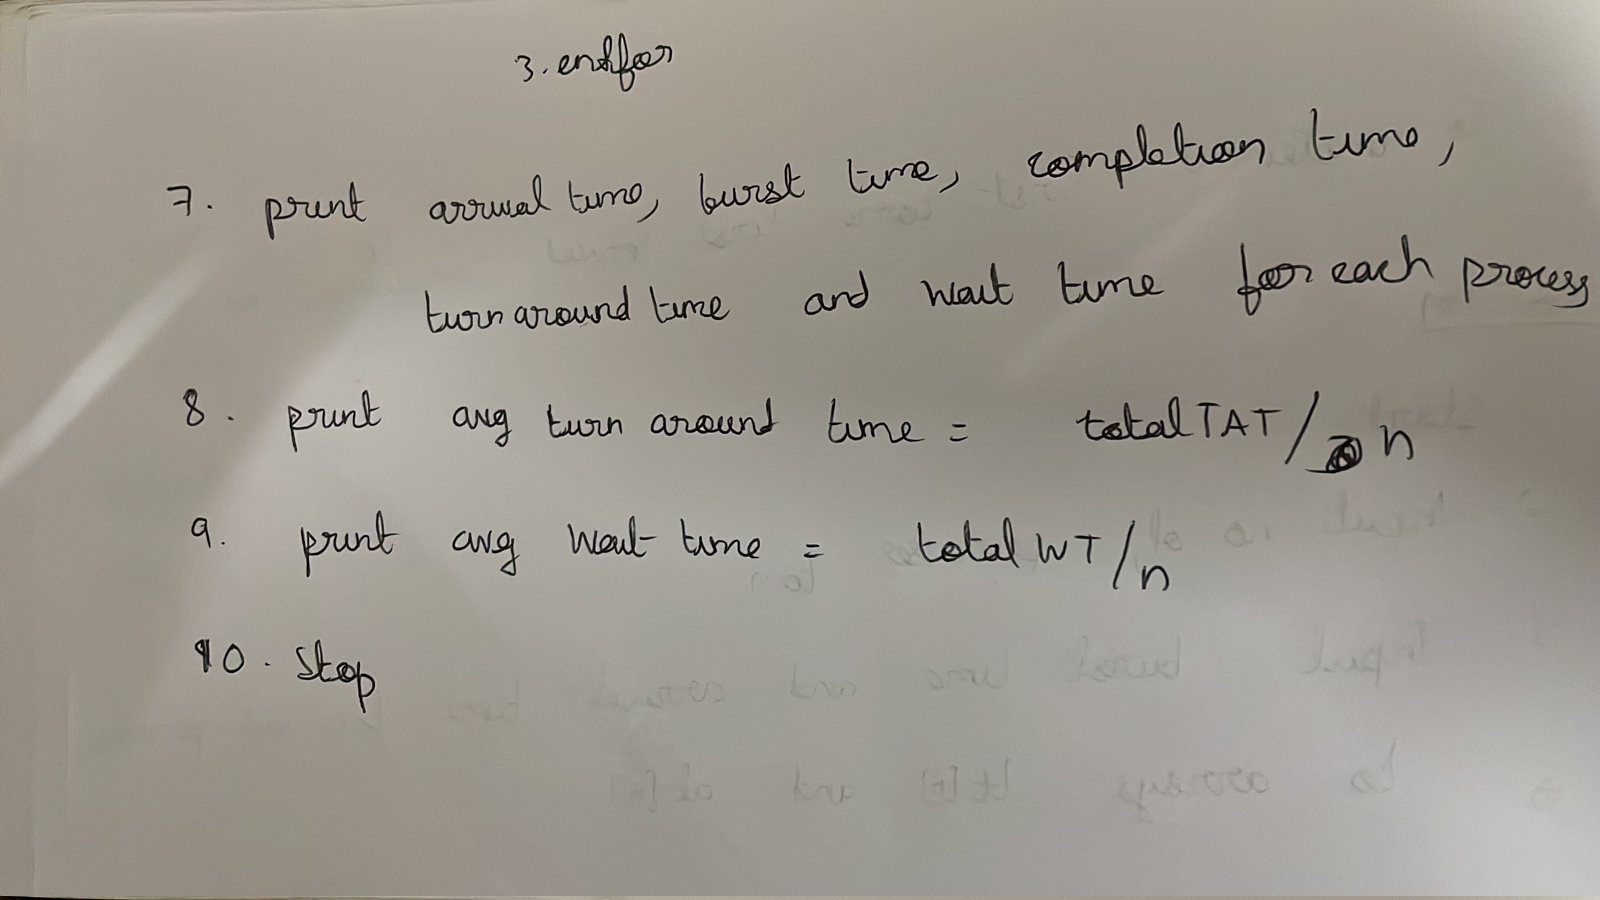 3. endfor
7. print arrival time, burst time, completion time,
turn around time and wait time for each process
8. print avg turn around time = total TAT/n
9. print avg wait time = total WT/n
10. Stop